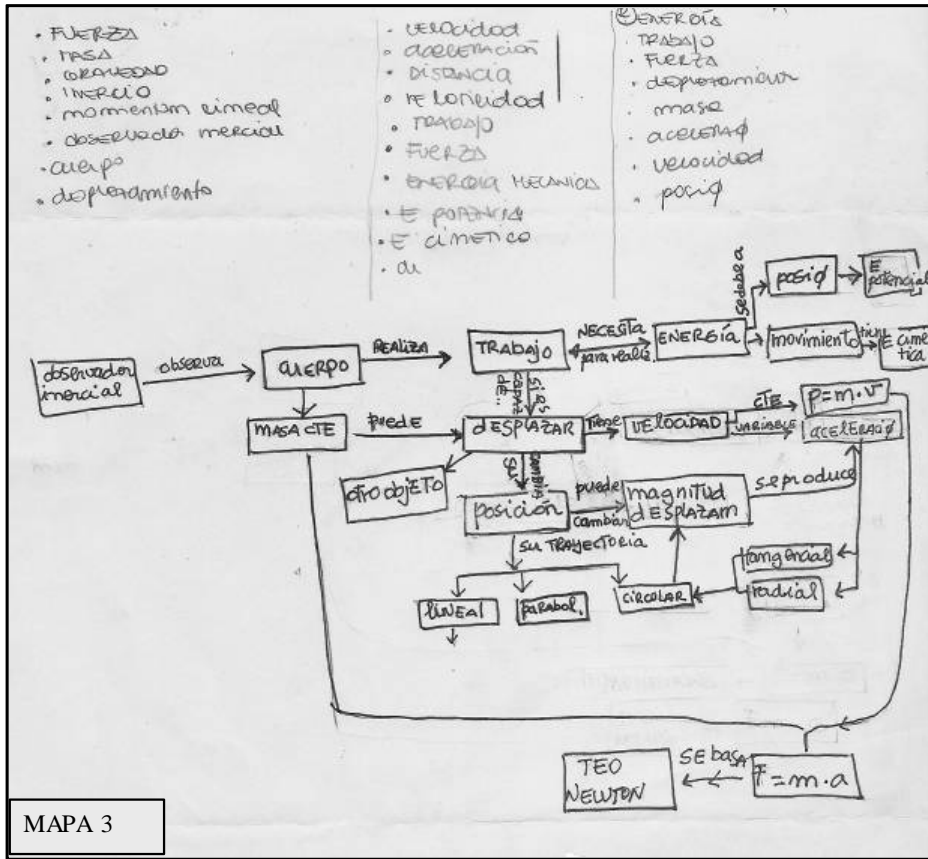 • FUERZA
• MASA
• GRAVEDAD
• INERCIO
• momentum lineal
• OBSERVADOR inercial
• cuerpo
• desplazamiento
• velocidad
• aceleración
• DISTANCIA
• velocidad
• TRABAJO
• FUERZA
• ENERGIA MECANICA
• E POTENCIA
• E CINETICO
• de
ENERGÍA
• TRABAJO
• FUERZA
• desplazamiento
masa
• aceleraφ
• velocidad
• posiφ
se debe a
posiφ
E potencial
observador inercial
observa
CUERPO
REALIZA
TRABAJO
NECESITA
para realiz
ENERGÍA
movimiento
tiene
E cinetica
si es capaz de...
MASA CTE
puede
dESPLAZAR
tiene
VELOCIDAD
CTE
VARIABLE
P = m · v
aceleraciφ
otro objETO
SU
cambia
posición
puede
cambiar
magnitud dESPLAZAM
se produce
su TRAYECTORIA
tangencial
radial
LINEAl
parabol.
CIRCULAR
TEO NEWTON
SE basa
F = m · a
MAPA 3